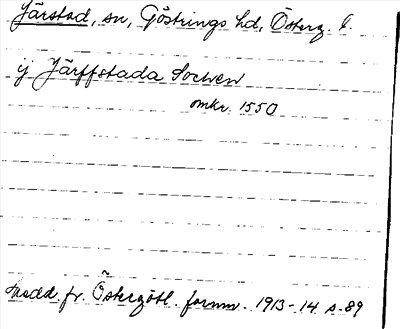 Järstad, sn, Göstrings hd, Österg. l.
ÿ Järffstada Sochen
omkr. 1550
Medd. fr. Östergötl. fornm. 1913-14 s. 89